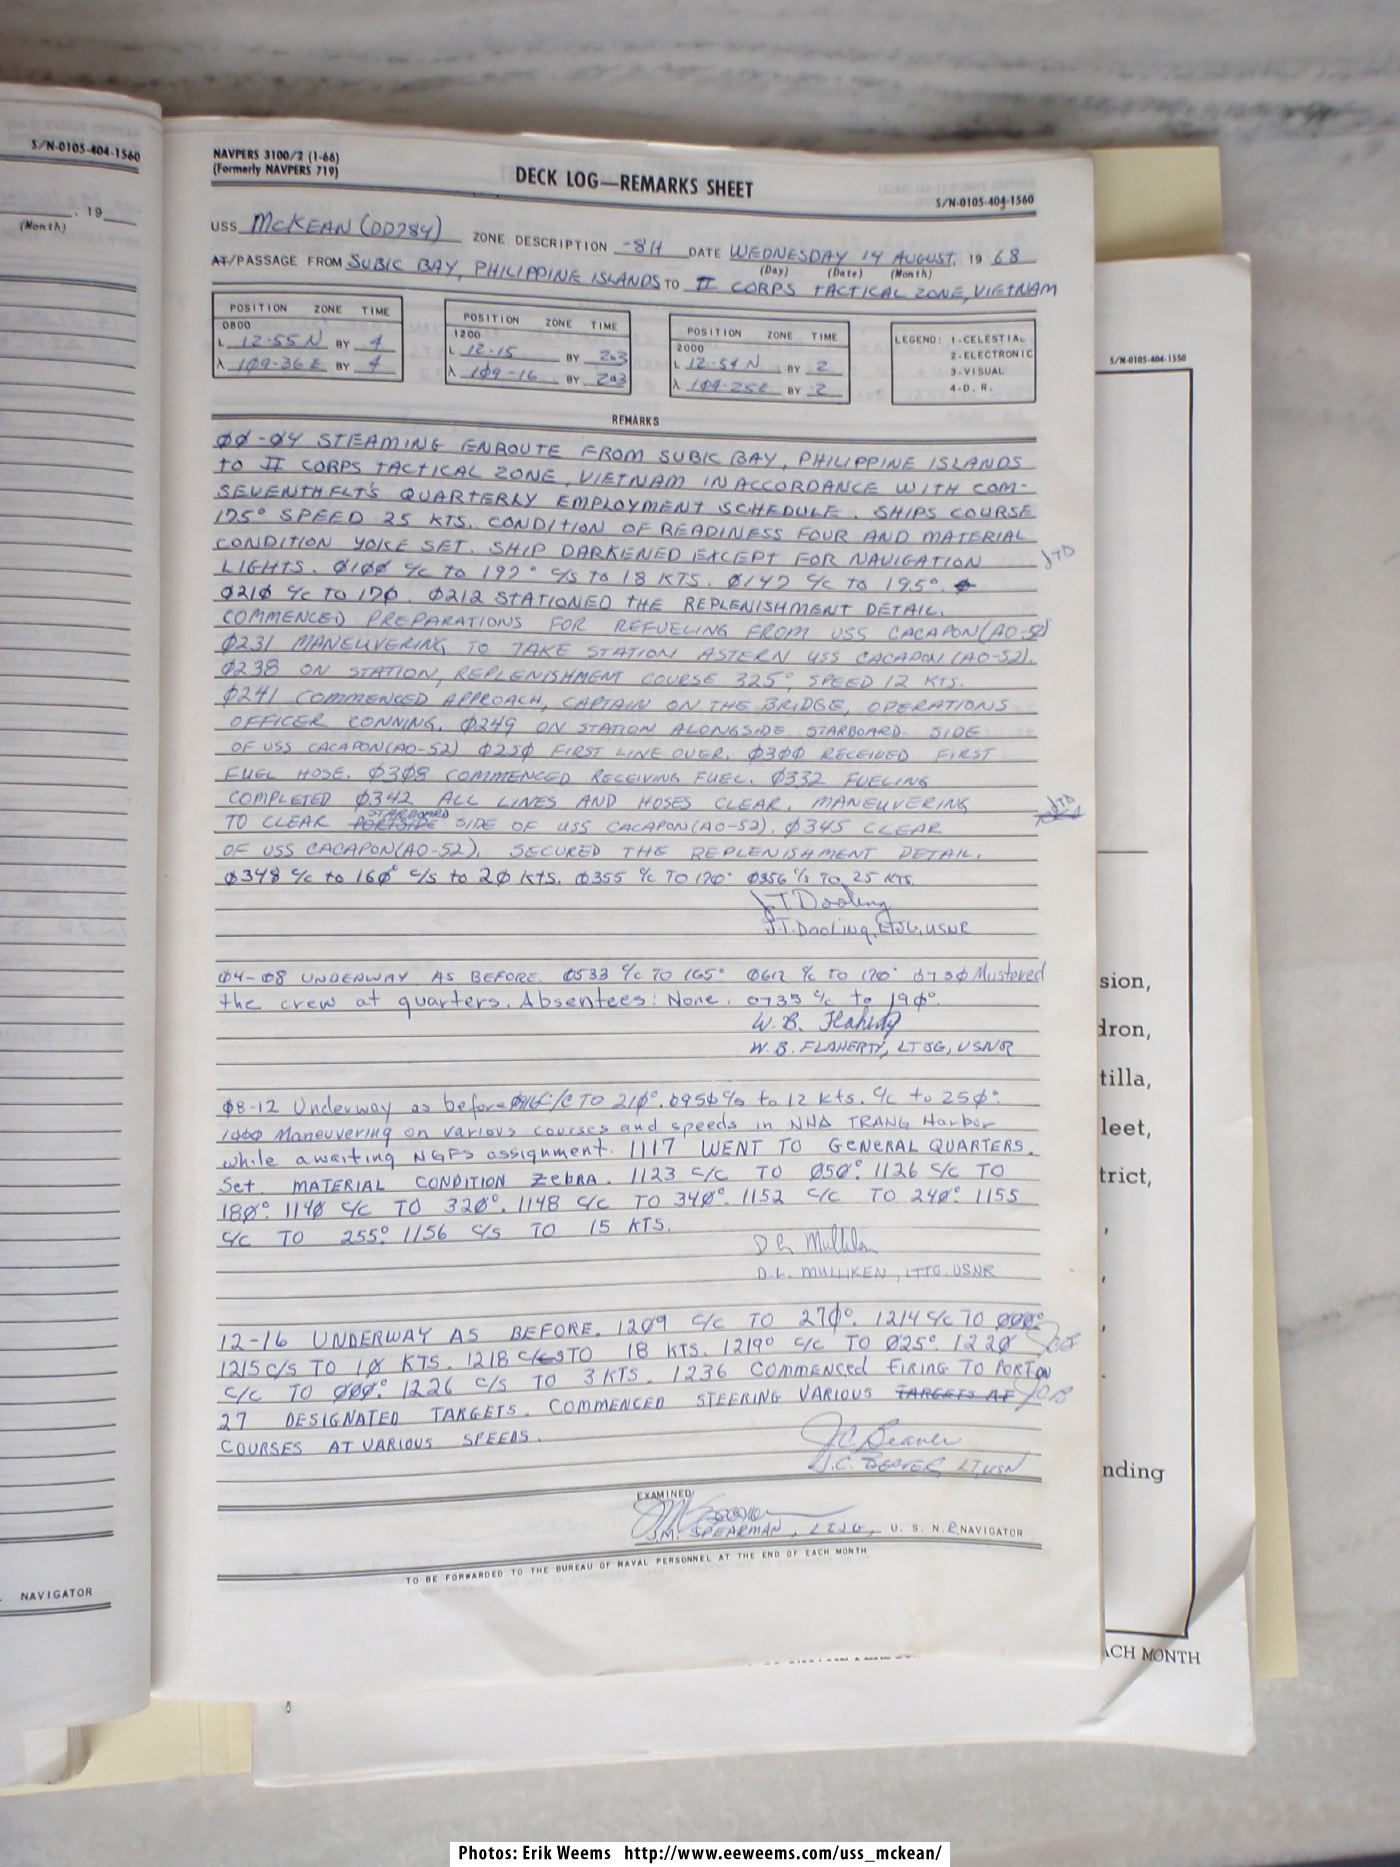 S/N-0105-404-1560
, 19
(Month)
NAVIGATOR
NAVPERS 3100/2 (1-66)
(Formerly NAVPERS 719)
DECK LOG—REMARKS SHEET
S/N-0105-404-1560
USS McKEAN (DD784) ZONE DESCRIPTION -8H DATE WEDNESDAY 14 AUGUST, 19 68
(Day) (Date) (Month)
AT/PASSAGE FROM SUBIC BAY, PHILIPPINE ISLANDS TO II CORPS TACTICAL ZONE, VIETNAM
POSITION ZONE TIME
0800
L 12-55 N BY 4
λ 1Ø9-36 E BY 4
POSITION ZONE TIME
1200
L 12-15 BY 2a3
λ 1Ø9-16 BY 2a3
POSITION ZONE TIME
2000
L 12-54 N BY 2
λ 1Ø9-25E BY 2
LEGEND: 1-CELESTIAL
2-ELECTRONIC
3-VISUAL
4-D. R.
REMARKS
ØØ-Ø4 STEAMING ENROUTE FROM SUBIC BAY, PHILIPPINE ISLANDS
TO II CORPS TACTICAL ZONE, VIETNAM IN ACCORDANCE WITH COM-
SEVENTHFLT'S QUARTERLY EMPLOYMENT SCHEDULE. SHIPS COURSE
175° SPEED 25 KTS. CONDITION OF READINESS FOUR AND MATERIAL
CONDITION YOKE SET. SHIP DARKENED EXCEPT FOR NAVIGATION JTD
LIGHTS. Ø1ØØ C/C TO 197° C/S TO 18 KTS. Ø147 C/C TO 195°.
Ø21Ø C/C TO 17Ø. Ø212 STATIONED THE REPLENISHMENT DETAIL.
COMMENCED PREPARATIONS FOR REFUELING FROM USS CACAPON (AO-52)
Ø231 MANEUVERING TO TAKE STATION ASTERN USS CACAPON (AO-52).
Ø238 ON STATION, REPLENISHMENT COURSE 325°, SPEED 12 KTS.
Ø241 COMMENCED APPROACH, CAPTAIN ON THE BRIDGE, OPERATIONS
OFFICER CONNING. Ø249 ON STATION ALONGSIDE STARBOARD SIDE
OF USS CACAPON (AO-52) Ø25Ø FIRST LINE OVER. Ø3ØØ RECEIVED FIRST
FUEL HOSE. Ø3Ø8 COMMENCED RECEIVING FUEL. Ø332 FUELING
COMPLETED Ø342 ALL LINES AND HOSES CLEAR. MANEUVERING JTD
TO CLEAR PORTSIDE STARBOARD SIDE OF USS CACAPON (AO-52). Ø345 CLEAR
OF USS CACAPON (AO-52). SECURED THE REPLENISHMENT DETAIL.
Ø348 C/C to 16Ø° C/S to 2Ø KTS. Ø355 C/C TO 170° Ø356 C/S TO 25 KTS.
J.T. Dooling
J.T. DOOLING, LTJG, USNR
Ø4-Ø8 UNDERWAY AS BEFORE. Ø533 C/C TO 165° Ø612 C/C TO 170° Ø73Ø Mustered
the crew at quarters. Absentees: None. 0735 C/C to 19Ø°.
W. B. Flaherty
W. B. FLAHERTY, LTJG, USNR
Ø8-12 Underway as before C/C TO 21Ø°. Ø95Ø C/S to 12 kts. C/C to 25Ø°.
1ØØØ Maneuvering on various courses and speeds in NHA TRANG Harbor
while awaiting NGFS assignment. 1117 WENT TO GENERAL QUARTERS.
Set MATERIAL CONDITION ZEBRA. 1123 C/C TO Ø5Ø°. 1126 C/C TO
18Ø°. 114Ø C/C TO 32Ø°. 1148 C/C TO 34Ø°. 1152 C/C TO 24Ø°. 1155
C/C TO 255° 1156 C/S TO 15 KTS.
D L Mulliken
D.L. MULLIKEN, LTJG. USNR
12-16 UNDERWAY AS BEFORE. 12Ø9 C/C TO 27Ø°. 1214 C/C TO ØØØ°
1215 C/S TO 1Ø KTS. 1218 C/S TO 18 KTS. 1219° C/C TO Ø25°. 122Ø JCB
C/C TO ØØØ°. 1226 C/S TO 3 KTS. 1236 COMMENCED FIRING TO PORT ON
27 DESIGNATED TARGETS. COMMENCED STEERING VARIOUS TARGETS AT JCB
COURSES AT VARIOUS SPEEDS.
J C Beaver
J.C. BEAVER, LT, USN
EXAMINED
J.M. SPEARMAN, LTJG, U. S. N. R NAVIGATOR
TO BE FORWARDED TO THE BUREAU OF NAVAL PERSONNEL AT THE END OF EACH MONTH
S/N-0105-404-1550
sion,
dron,
tilla,
leet,
trict,
nding
ACH MONTH
Photos: Erik Weems http://www.eeweems.com/uss_mckean/